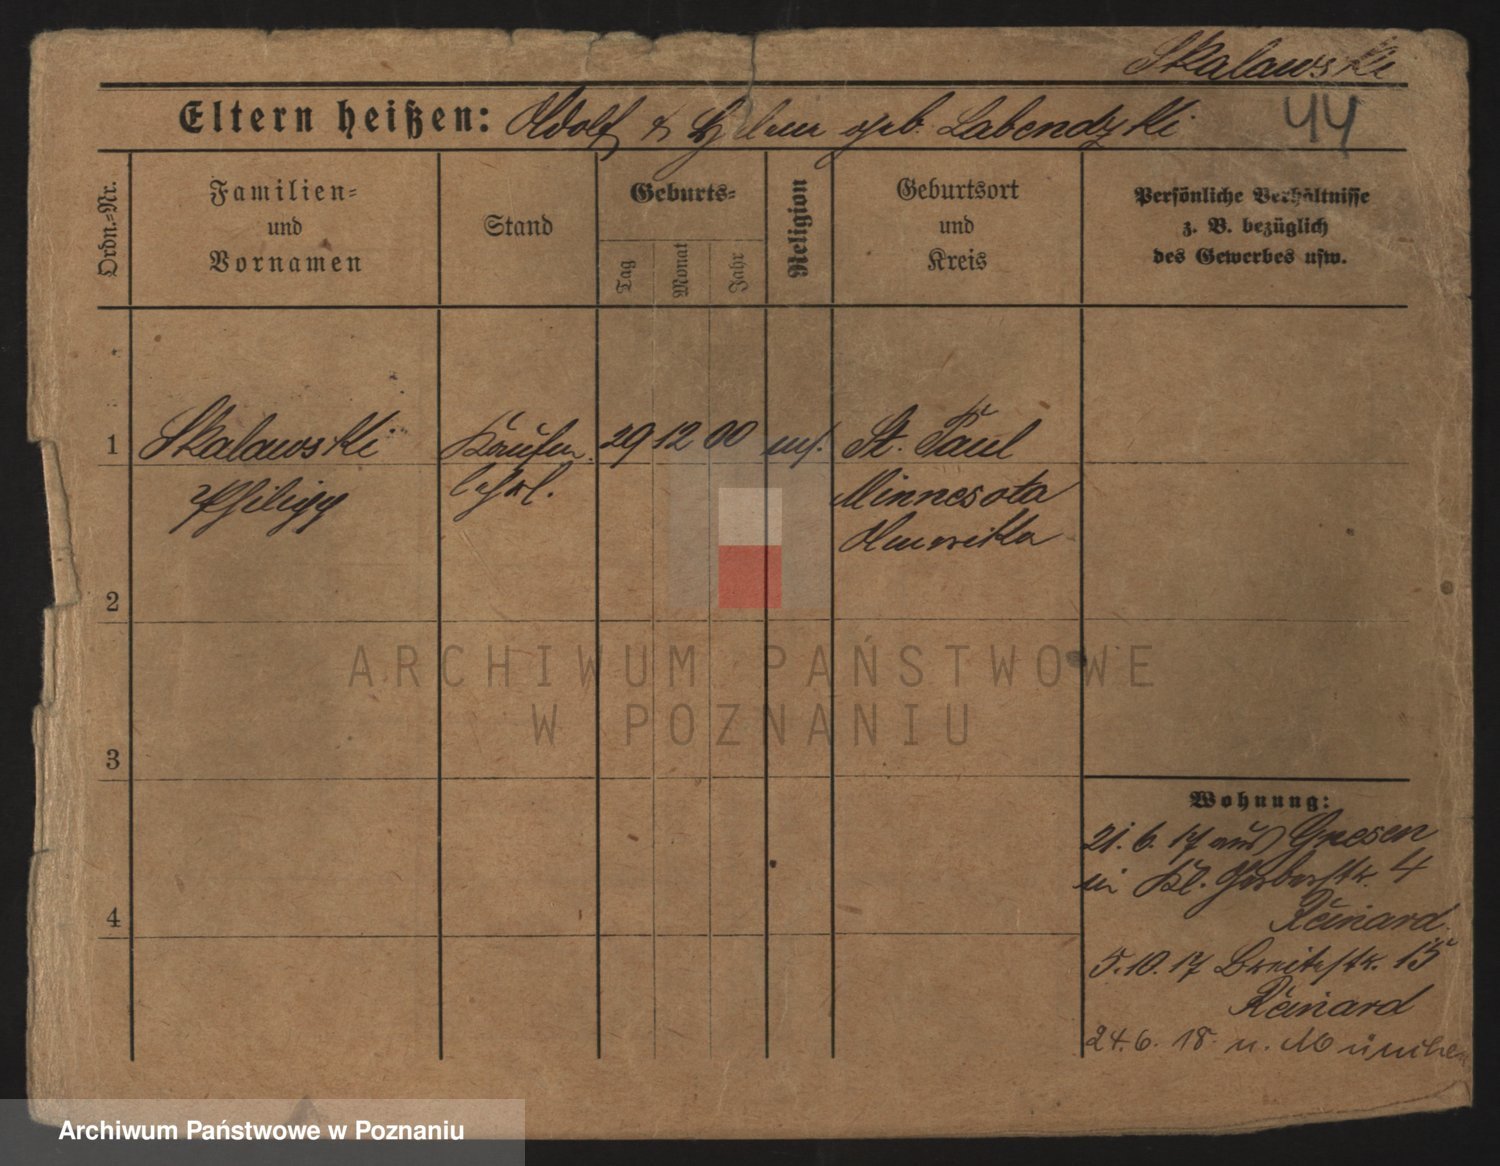 Skalawski
Eltern heißen: Adolf & Helene geb. Labendzki
44
Ordn.=Nr.
Familien=
und
Vornamen
Stand
Geburts=
Tag
Monat
Jahr
Religion
Geburtsort
und
Kreis
Persönliche Verhältnisse
z. B. bezüglich
des Gewerbes usw.
1
Skalawski
Philipp
Kaufm.
lehrl.
29 12 00
mos.
St. Paul
Minnesota
Amerika
2
3
4
Wohnung:
21. 6. 17 aus Gnesen
in Kl. Gerberstr. 4
Reinard
5. 10. 17 Breitestr. 15
Reinard
24. 6. 18. n. München
ARCHIWUM PAŃSTWOWE
W POZNANIU
Archiwum Państwowe w Poznaniu